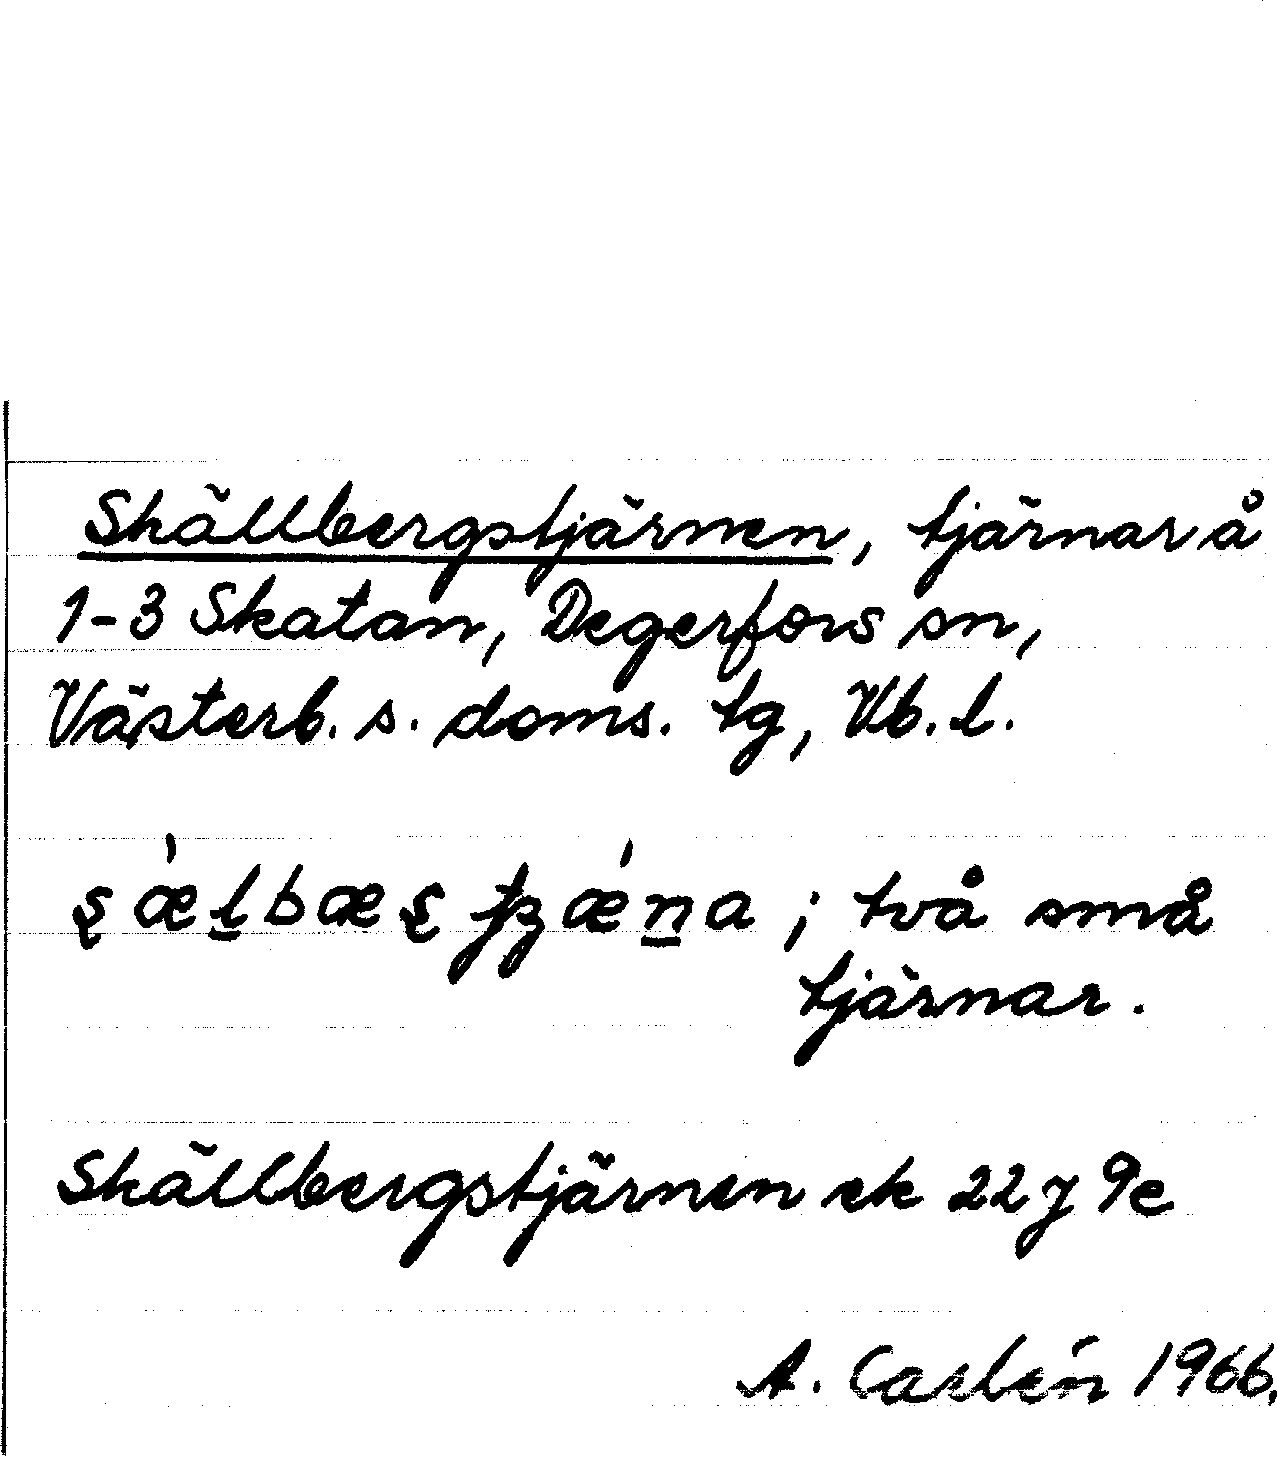 Skällbergstjärnen, tjärnar å
1-3 Skatan, Degerfors sn,
Västerb. s. doms. tg, Vb. l.
; två små
tjärnar.
Skällbergstjärnen ek 22 J 9e
A. Carlén 1966.